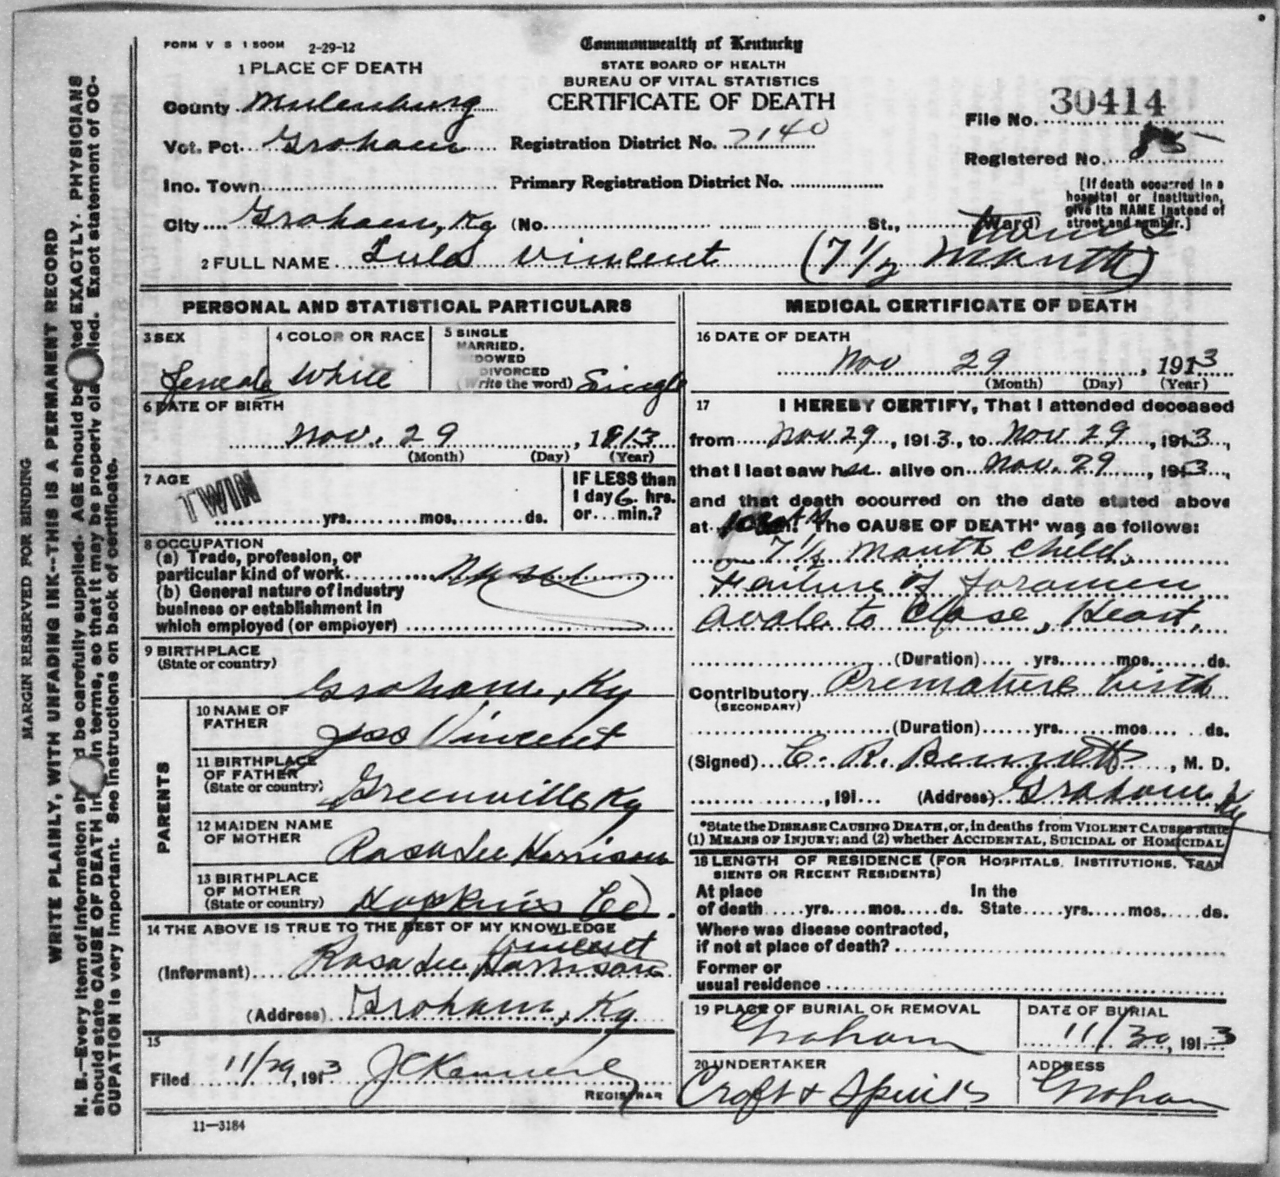 FORM V S 1 500M 2-29-12
Commonwealth of Kentucky
STATE BOARD OF HEALTH
BUREAU OF VITAL STATISTICS
CERTIFICATE OF DEATH
1 PLACE OF DEATH
County Muhlenburg
Vot. Pct. Graham
Registration District No. 7140
File No. 30414
Registered No.
Ino. Town
Primary Registration District No.
City Graham, Ky (No. St., Ward)
[If death occurred in a hospital or institution, give its NAME instead of street and number.]
2 FULL NAME Lula Vincent (7 1/2 Month)
PERSONAL AND STATISTICAL PARTICULARS
3 SEX Female
4 COLOR OR RACE White
5 SINGLE MARRIED, WIDOWED DIVORCED (Write the word) Single
6 DATE OF BIRTH
Nov. 29, 1913
(Month) (Day) (Year)
7 AGE TWIN
yrs. mos. ds.
IF LESS than 1 day 6 hrs. or min.?
8 OCCUPATION
(a) Trade, profession, or
particular kind of work
(b) General nature of industry
business or establishment in
which employed (or employer)
9 BIRTHPLACE
(State or country)
Graham, Ky
PARENTS
10 NAME OF FATHER
Jas Vincent
11 BIRTHPLACE OF FATHER (State or country)
Greenville Ky
12 MAIDEN NAME OF MOTHER
Rosa Lee Harrison
13 BIRTHPLACE OF MOTHER (State or country)
Hopkins Co.
14 THE ABOVE IS TRUE TO THE BEST OF MY KNOWLEDGE
Vincent
(Informant) Rosa Lee Harrison
(Address) Graham, Ky
15
Filed 11/29, 1913
REGISTRAR
11—3184
MEDICAL CERTIFICATE OF DEATH
16 DATE OF DEATH
Nov 29, 1913
(Month) (Day) (Year)
17 I HEREBY CERTIFY, That I attended deceased
from Nov 29, 1913, to Nov 29, 1913,
that I last saw her alive on Nov. 29, 1913,
and that death occurred on the date stated above
at The CAUSE OF DEATH* was as follows:
7 1/2 Month Child.
Failure of foramen
Ovale to Close, Heart.
(Duration) yrs. mos. ds.
Contributory Premature birth
(SECONDARY)
(Duration) yrs. mos. ds.
(Signed) C. R. Bennett, M. D.
, 191 (Address) Graham Ky
*State the DISEASE CAUSING DEATH, or, in deaths from VIOLENT CAUSES state
(1) MEANS OF INJURY; and (2) whether ACCIDENTAL, SUICIDAL or HOMICIDAL
18 LENGTH OF RESIDENCE (FOR HOSPITALS, INSTITUTIONS, TRAN
SIENTS OR RECENT RESIDENTS)
At place of death yrs. mos. ds. In the State yrs. mos. ds.
Where was disease contracted,
if not at place of death?
Former or
usual residence
19 PLACE OF BURIAL OR REMOVAL
Graham
DATE OF BURIAL
11/30, 1913
20 UNDERTAKER
Croft &
ADDRESS
Graham
MARGIN RESERVED FOR BINDING
WRITE PLAINLY, WITH UNFADING INK--THIS IS A PERMANENT RECORD
N. B.—Every item of information should be carefully supplied. AGE should be stated EXACTLY. PHYSICIANS
should state CAUSE OF DEATH in terms, so that it may be properly classified. Exact statement of OC-
CUPATION is very important. See instructions on back of certificate.